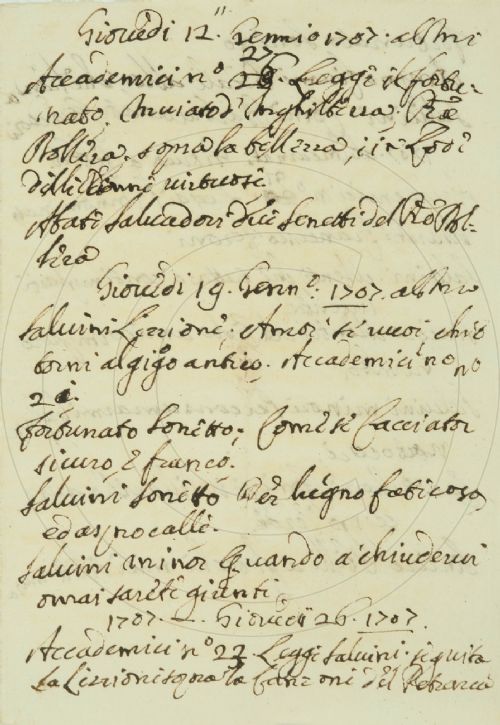 Giovedi 12. Gennio 1707. al
Accademici n.º 27 Leggè il fortu-
nato. Inviato d'Inghilterra.
sopra la bellezza, i Lodi
delle Donne virtuose
Abate Salvadori dice Sonetti del
Giovedi 19. Genn.º 1707. al
Salvini Lezzione. Amor se vuoi, ch'io
torni al giogo antico. Accademici no no
2
fortunato Sonetto; Come se Cacciator
sicuro, e franco.
Salvini Sonetto Per lugno faticoso
ed aspro calle.
Salvini minor Quando a chiudervi
omai sarete giunti
1707. — Giovedi 26. 1707.
Accademici n.º 22. Legge Salvini. seguita
la Lezzione sopra la Canzone del Petrarca